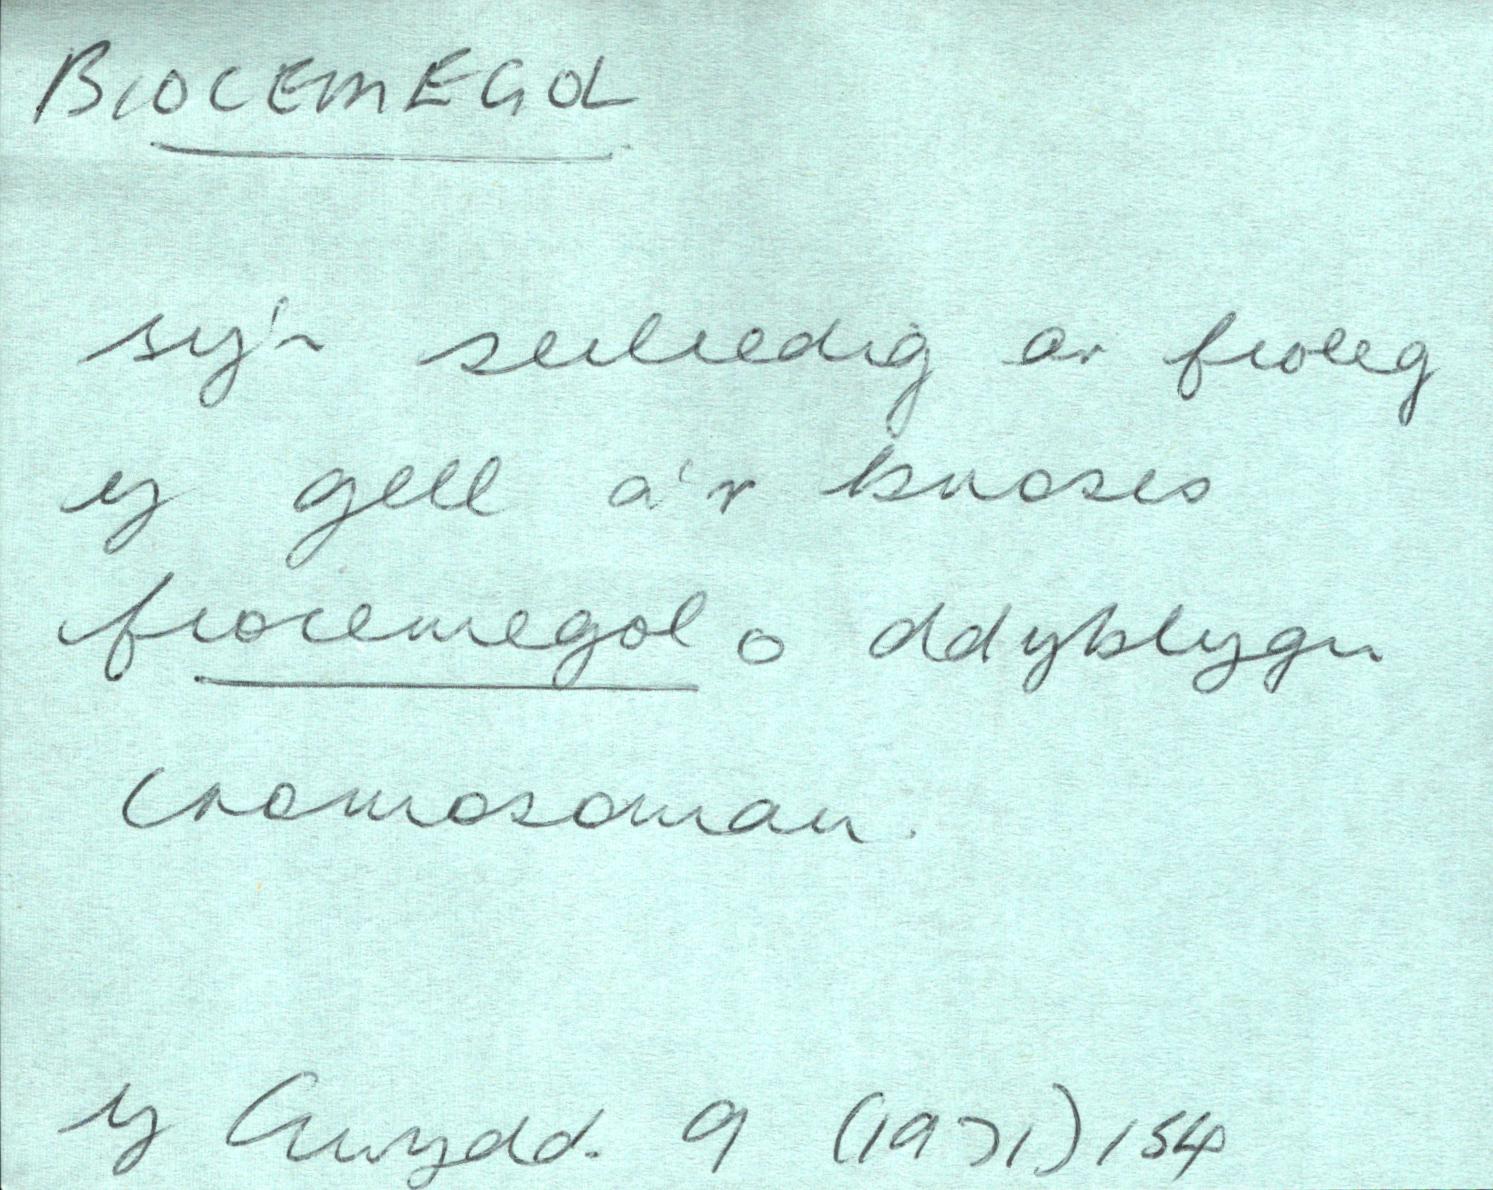 BIOCEMEGOL
sy'n seiliedig ar fioleg
y gell a'r broses
fiocemegol o ddyblygu
cromosomau.
y Gwydd. 9 (1971) 154